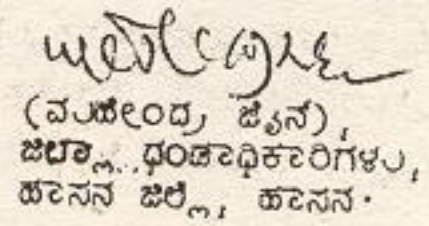 (ಮಹೇಂದ್ರ ಜೈನ್),
ಜಿಲ್ಲಾ ಧಂಡಾಧಿಕಾರಿಗಳು,
ಹಾಸನ ಜಿಲ್ಲೆ, ಹಾಸನ.